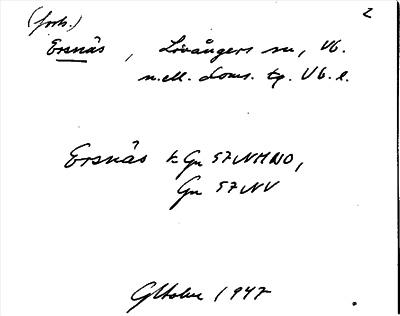 (forts.) 2
Ersnäs, Lövångers sn, Vb.
n. ell. doms. tg. Vb. l.
Ersnäs k Gn 57 NMNO,
Gn 57 NV
1947